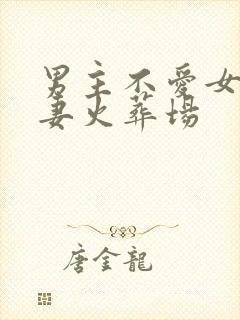 男主不愛女
妻火葬場
唐金龍